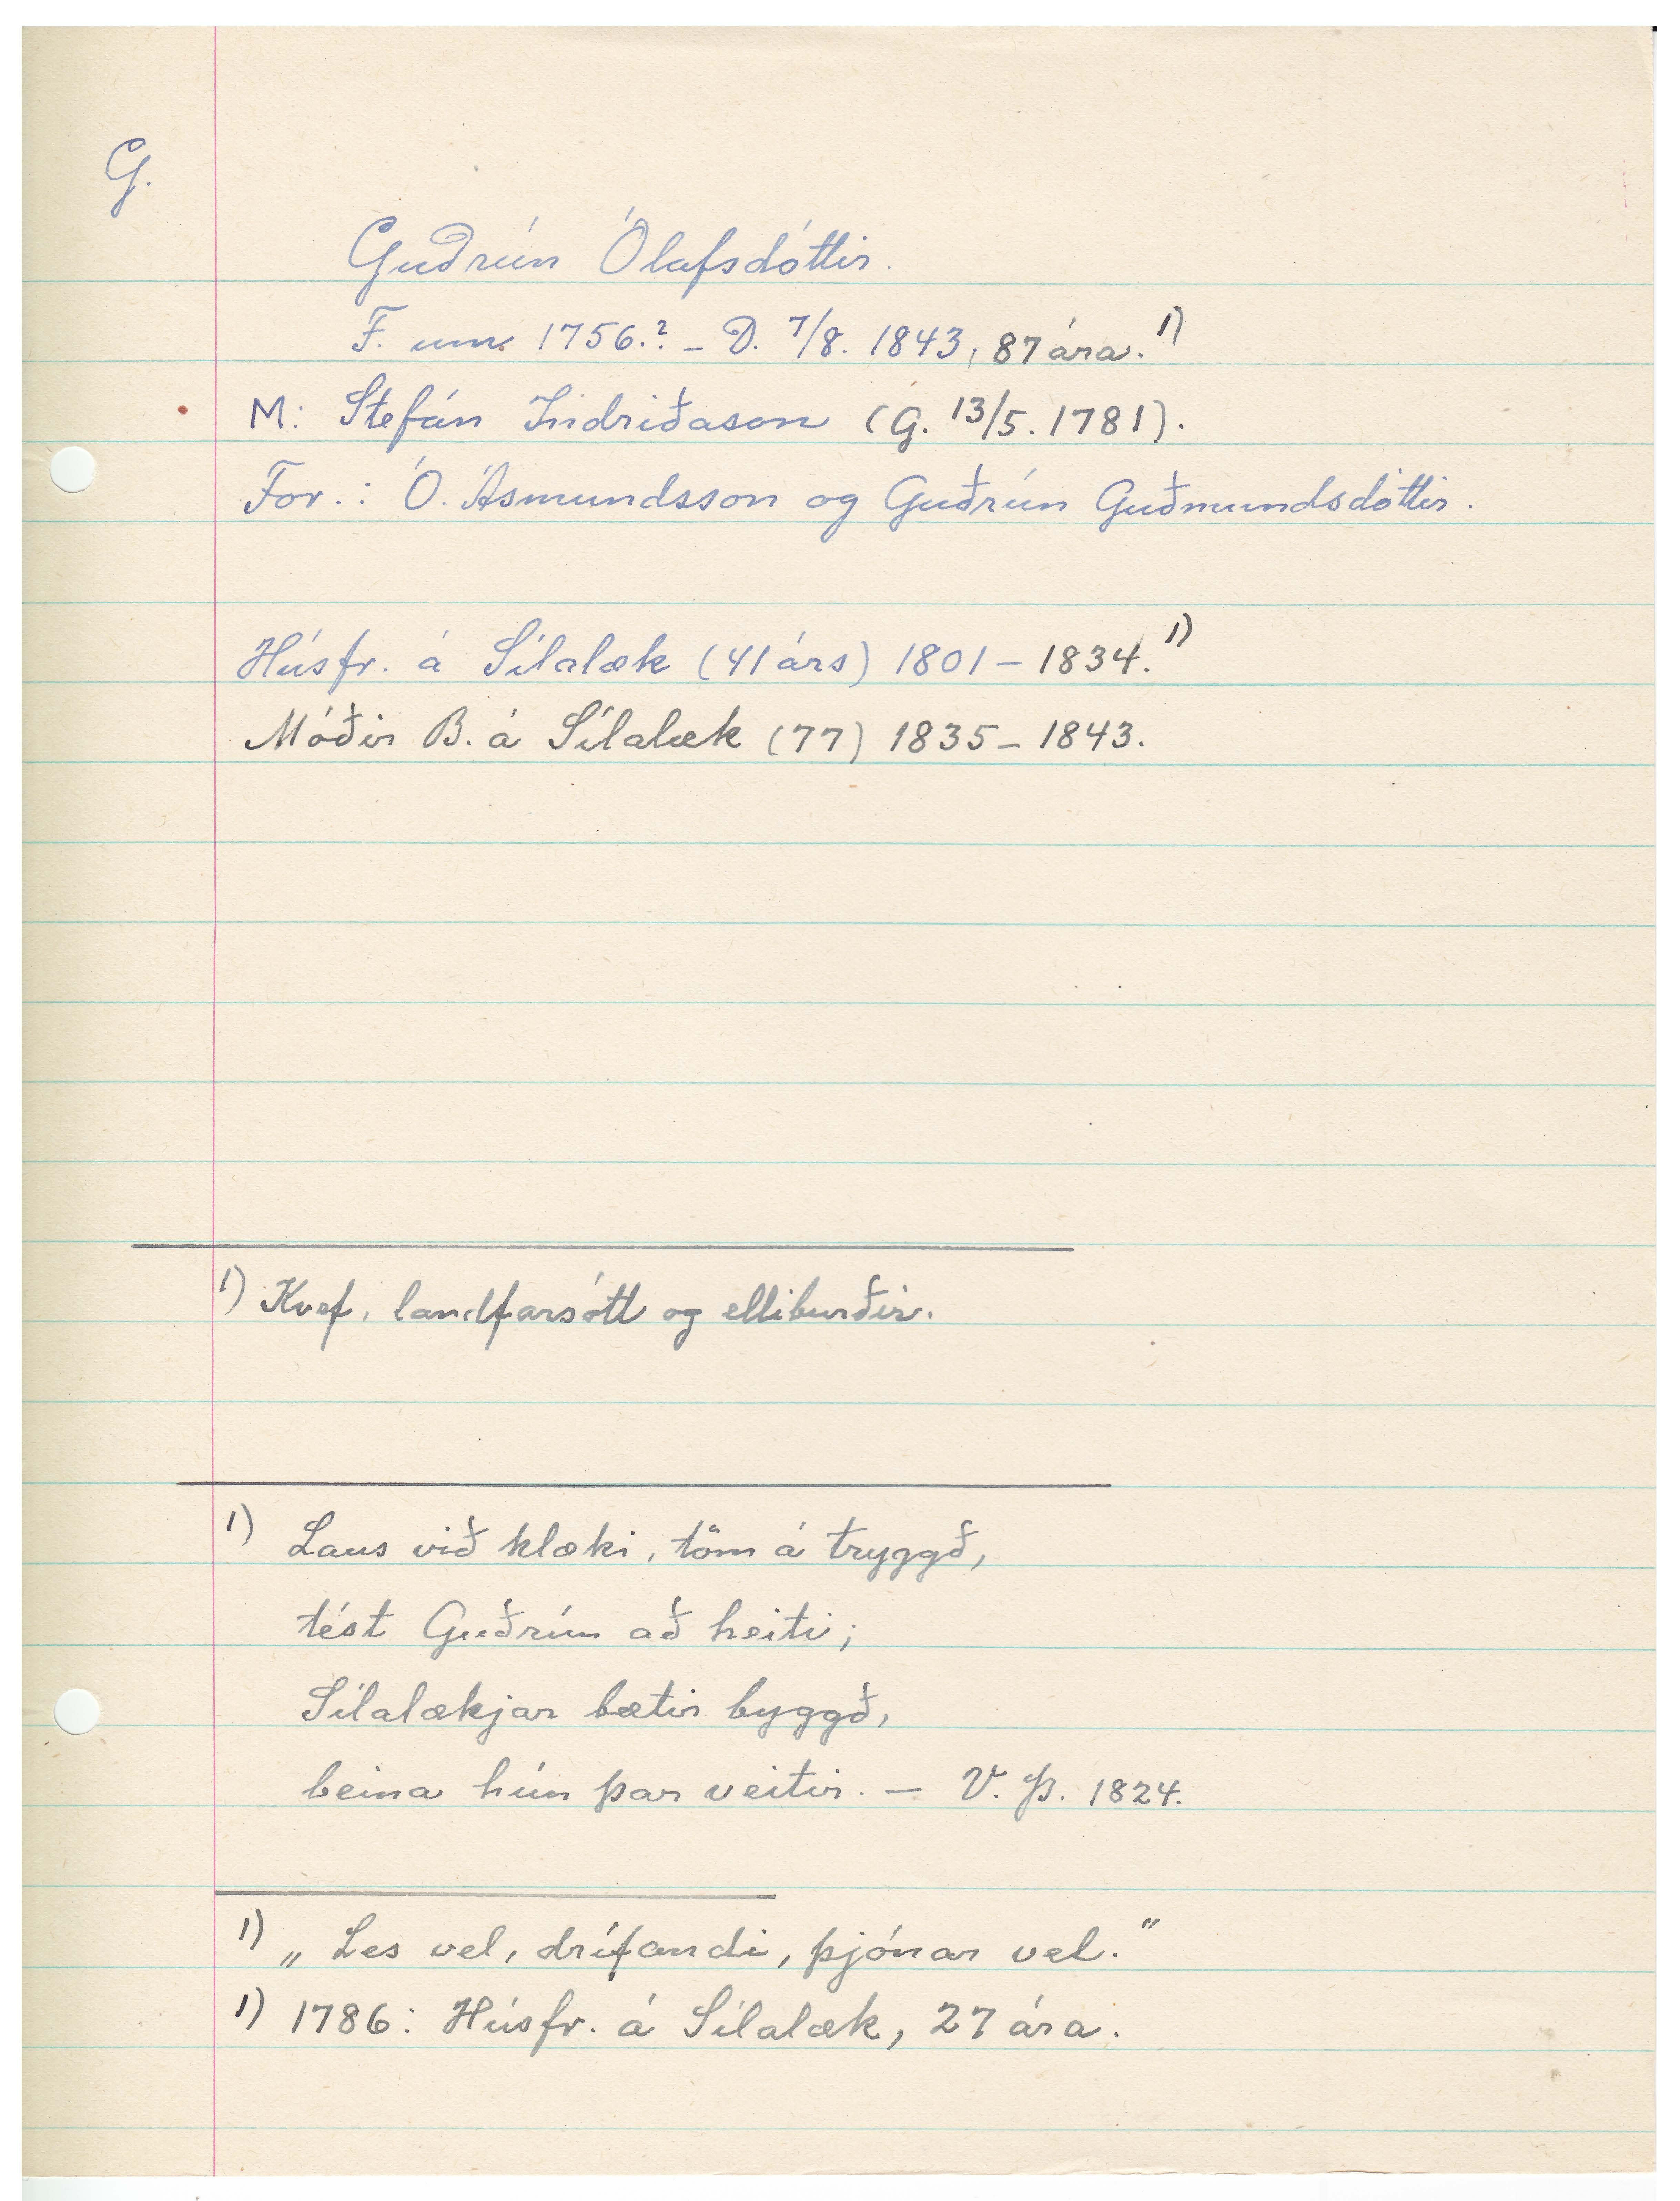 G.
Guðrún Ólafsdóttir.
F. um 1756.? – D. 7/8. 1843, 87 ára. 1)
M: Stefán Indriðason (G. 13/5. 1781).
For.: Ó. Ásmundsson og Guðrún Guðmundsdóttir.
Húsfr. á Sílalæk (41 árs) 1801 – 1834. 1)
Móðir B. á Sílalæk (77) 1835 – 1843.
1) Kvef, landfarsótt og elliburðir.
1) Laus við klæki, töm á tryggð,
tést Guðrún að heiti;
Sílalækjar bætir byggð,
beina hún þar veitir. – V. Þ. 1824.
1) „Les vel, drífandi, þjónar vel.“
1) 1786: Húsfr. á Sílalæk, 27 ára.